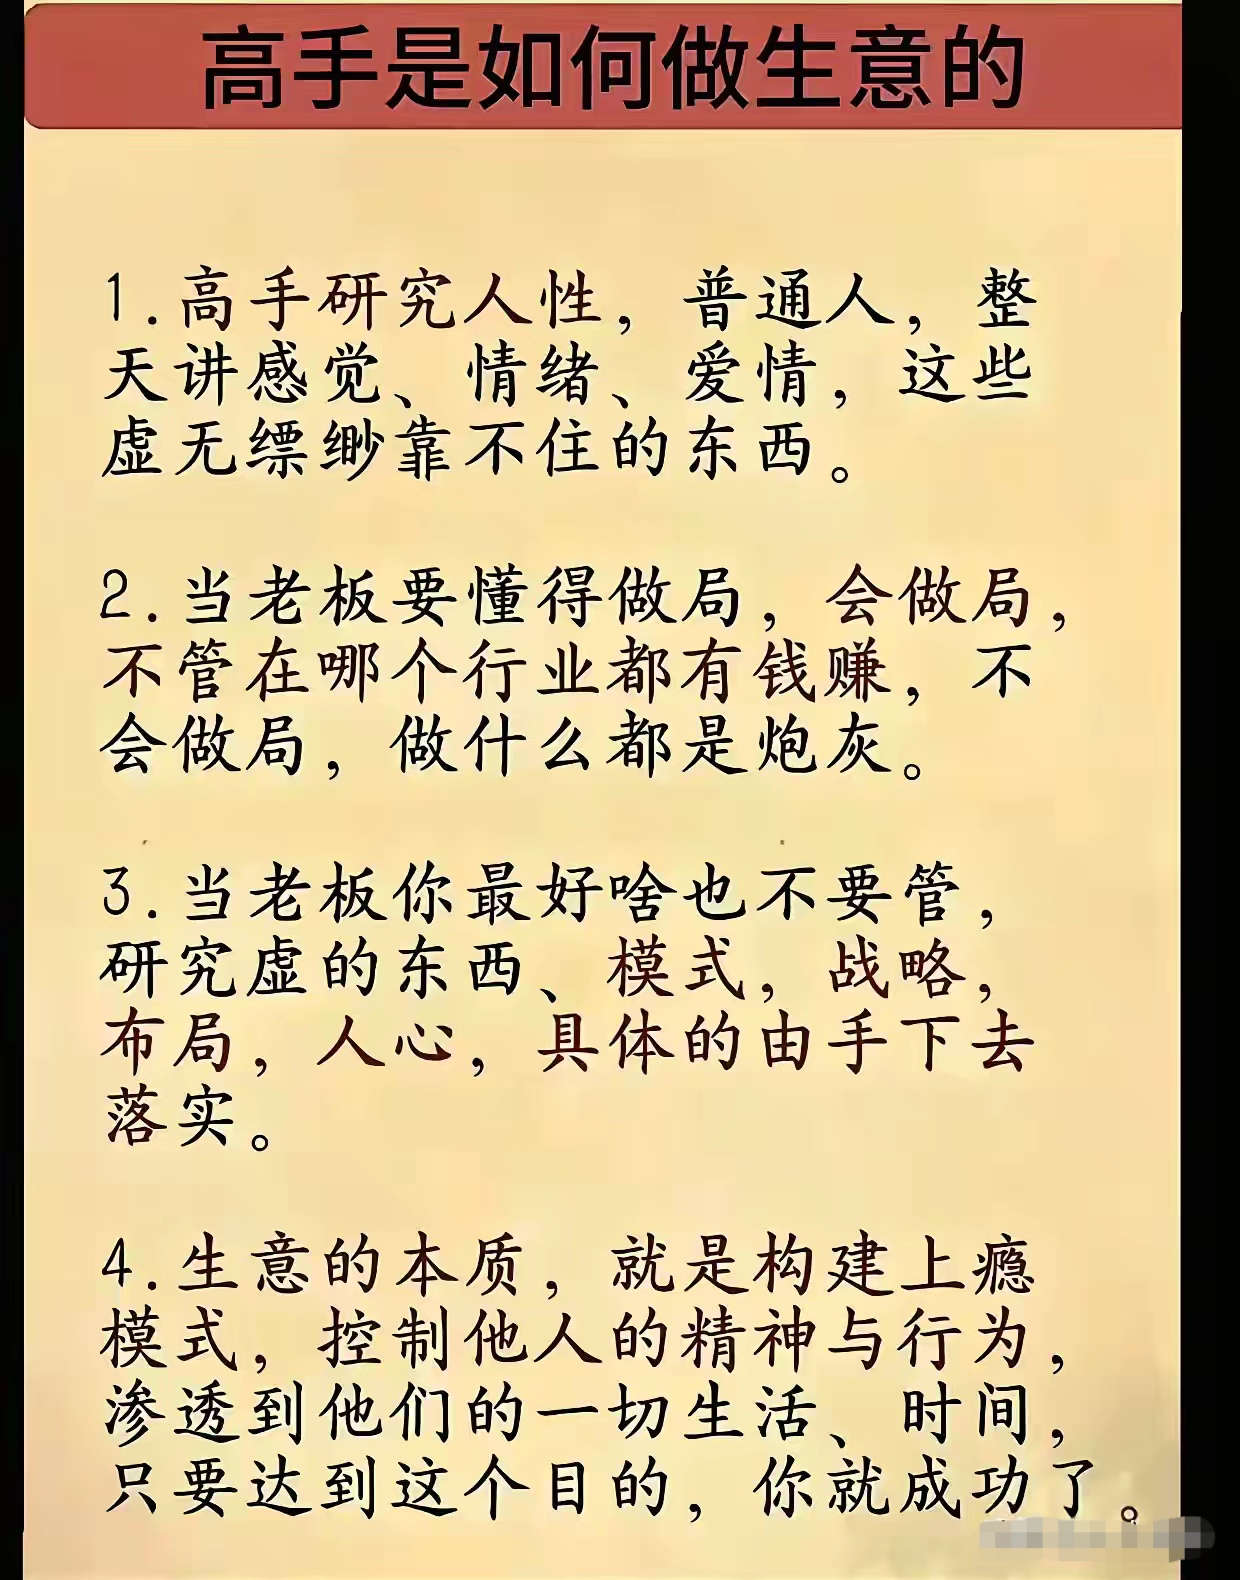 高手是如何做生意的
1.高手研究人性，普通人，整
天讲感觉、情绪、爱情，这些
虚无缥缈靠不住的东西。
2.当老板要懂得做局，会做局，
不管在哪个行业都有钱赚，不
会做局，做什么都是炮灰。
3.当老板你最好啥也不要管，
研究虚的东西、模式，战略，
布局，人心，具体的由手下去
落实。
4.生意的本质，就是构建上瘾
模式，控制他人的精神与行为，
渗透到他们的一切生活、时间，
只要达到这个目的，你就成功了。